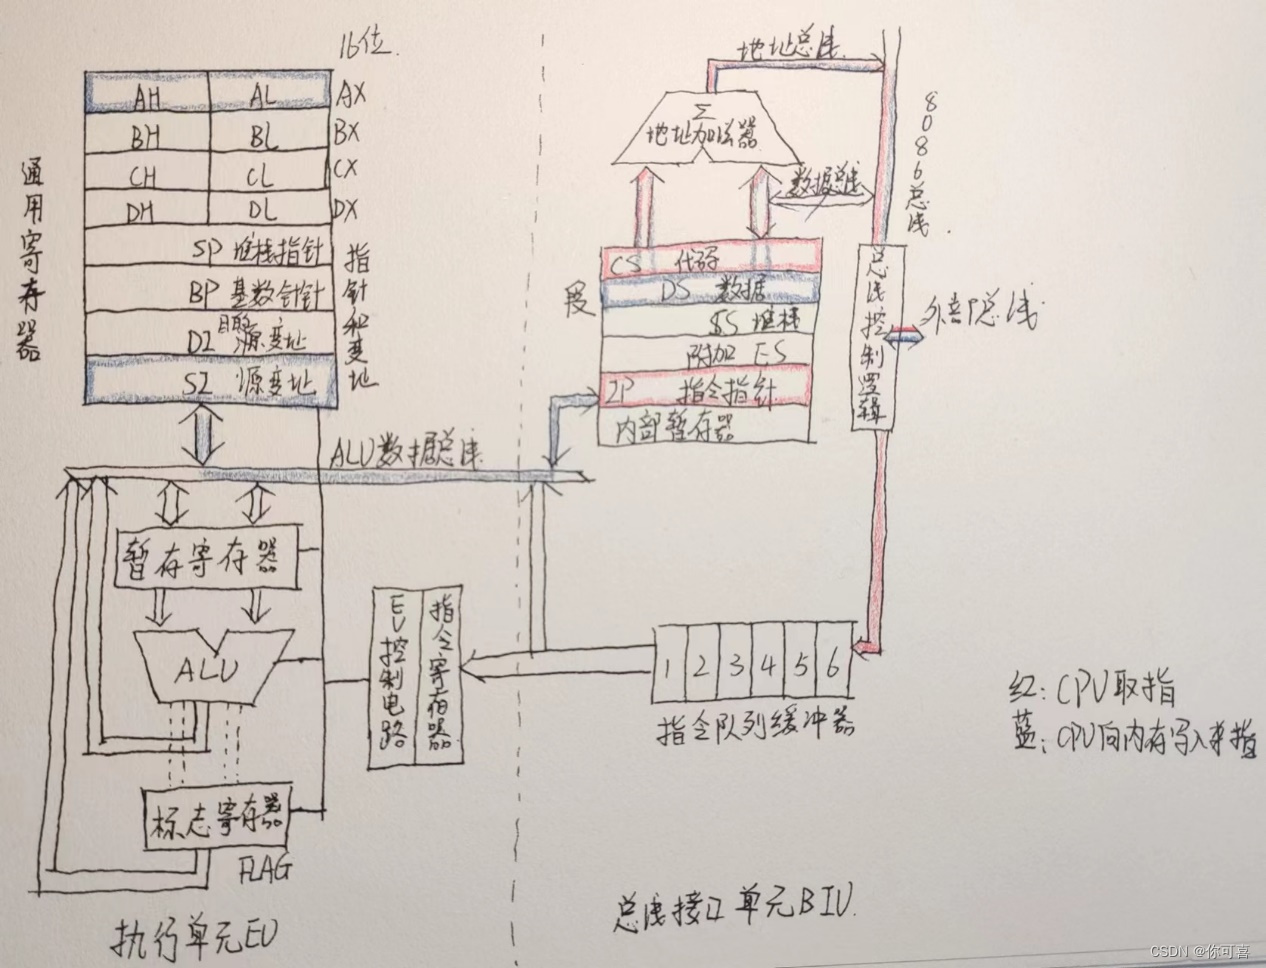 16位
AH AL AX
BH BL BX
CH CL CX
DH DL DX
SP 堆栈指针
BP 基数针
DI 目的 源变址
SI 源变址
通用寄存器
指针和变址
ALU数据总线
暂存寄存器
ALU
标志寄存器
FLAG
EU控制电路
指令寄存器
执行单元EU
地址总线
Σ
地址加法器
数据总线
8086总线
段
CS 代码
DS 数据
SS 堆栈
附加 ES
IP 指令指针
内部暂存器
总线控制逻辑
外部总线
1 2 3 4 5 6
指令队列缓冲器
总线接口单元BIU
红: CPU取指
蓝: CPU向内存写入
CSDN @你可喜